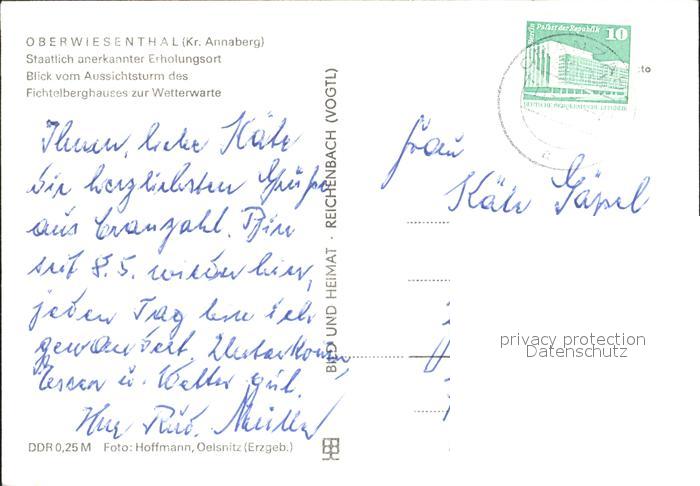 OBERWIESENTHAL (Kr. Annaberg)
Staatlich anerkannter Erholungsort
Blick vom Aussichtsturm des
Fichtelberghauses zur Wetterwarte
Ihnen, liebe Käte
die herzliebsten Grüße
aus Cranzahl. Bin
seit 8.5. wieder hier,
jeden Tag bin ich
gewandert. Unterkom.,
Essen u. Wetter gut.
Ihre Rud.
DDR 0,25 M Foto: Hoffmann, Oelsnitz (Erzgeb.)
BILD UND HEIMAT · REICHENBACH (VOGTL)
Berlin Palast der Republik
10
DEUTSCHE DEMOKRATISCHE REPUBLIK
Frau
Käte
privacy protection
Datenschutz